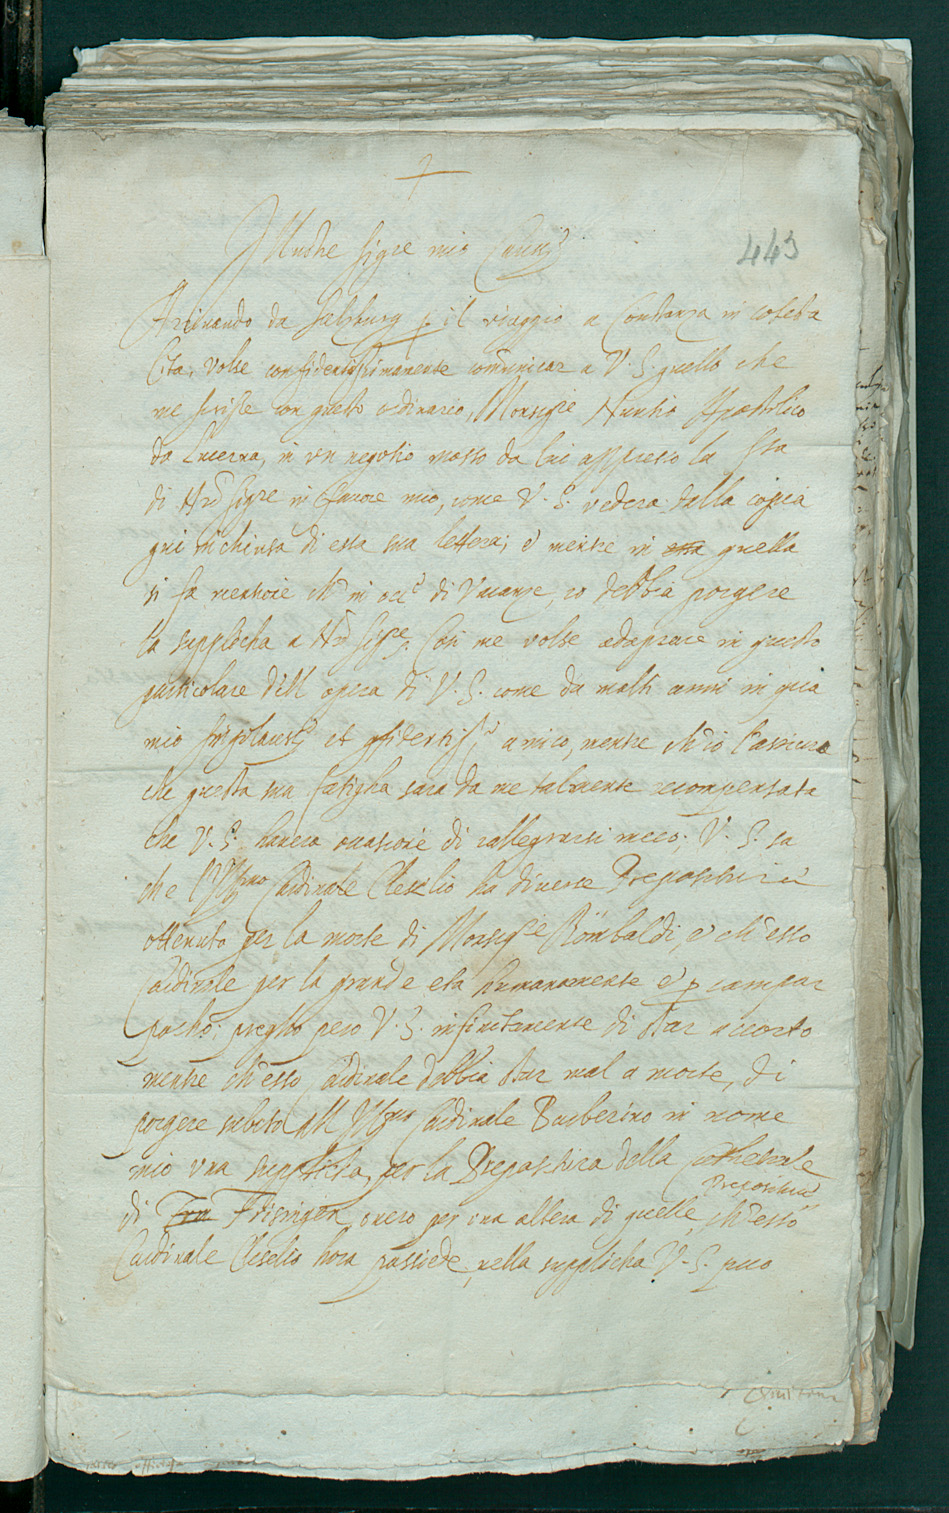 443
Illustre Sigre mio
Arrivando da Salzburg p il viaggio a Constanza in cotesta
Cita, volse confidentissimamente comunicar a V. S. quello che
me scrisse con questo ordinario, Monsigre Nuntio Apostolico
da Lucerna, in un negotio mosso da lui appresso la Sta
di Nro Sigre in favore mio, come V. S. vedera dalla copia
qui inchiusa di essa sua lettera; e mentre in quella
si fa mentione ch'in occe di Vacanze, io debbia porgere
la supplicha a Nro Sigre, Cosi me volse adoprare in questo
particolare dell' opera di V. S. come da molti anni in qua
mio singolariss. et confidentiss. amico, mentre ch'io l'assicuro
che questa sua fatigha sara da me talmente recompensata
che V. S. havera occasione di rallegrarsi meco. V. S. sa
che l'Illmo Cardinale Cleselio ha diverse Prepositure
ottenuto per la morte di Monsigre Rombaldi, e ch'esso
Cardinale per la grande eta humanamente e p campar
pocho; preglio pero V. S. infinitamente di star accorto
mentre ch'esso Cardinale debbia star mal a morte, di
porgere subito all Illmo Cardinale Barberino in nome
mio una supplicha, per la Prepositura della Cathedrale
di Frisingen, overo per una altera di quelle Prepositure, ch'esso
Cardinale Cleselio hora possiede, nella supplicha V. S. puo